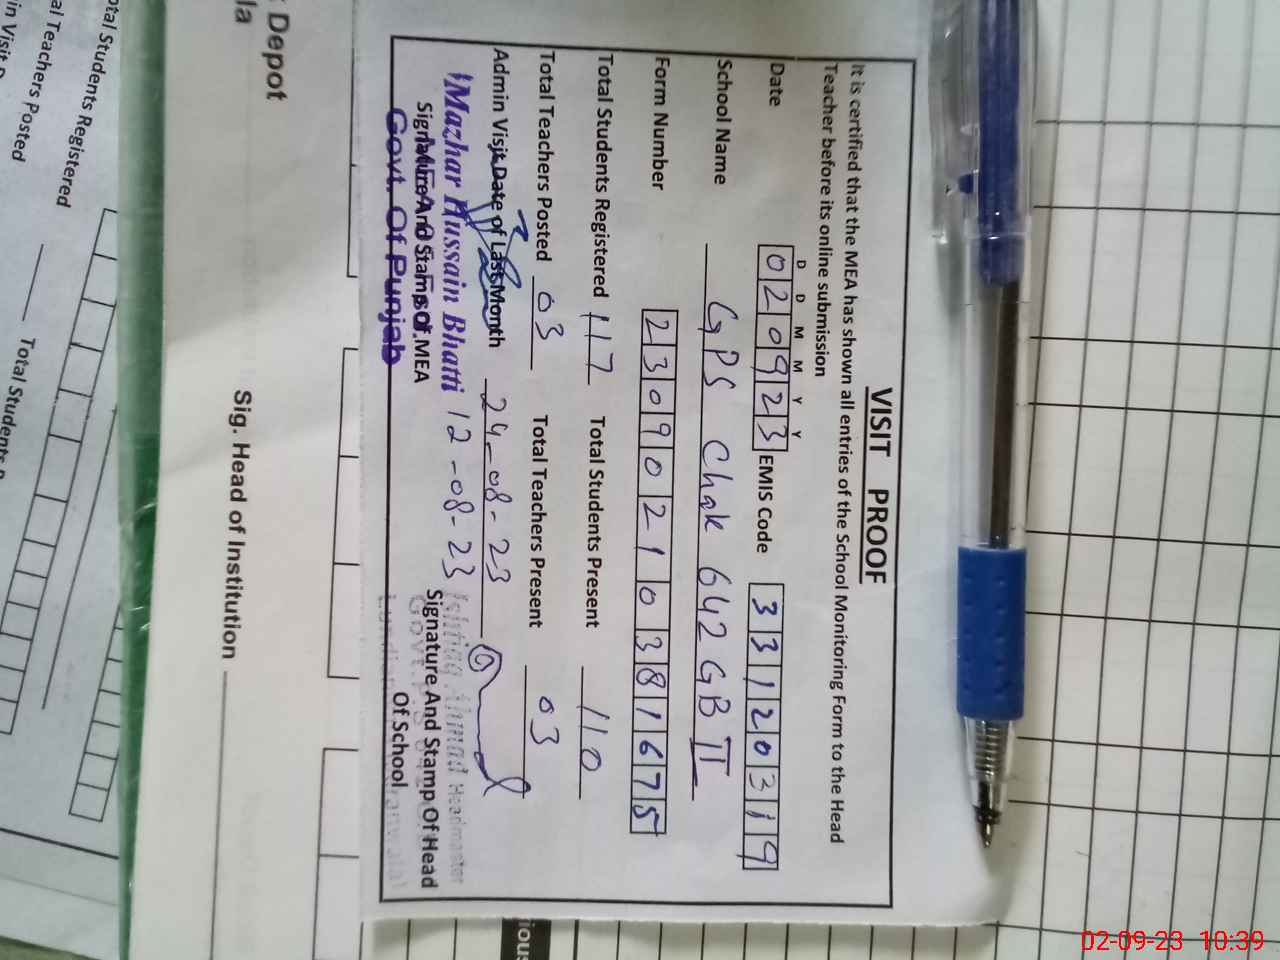 VISIT PROOF
It is certified that the MEA has shown all entries of the School Monitoring Form to the Head
Teacher before its online submission
D D M M Y Y
Date 020923 EMIS Code 33120319
School Name GPS Chak 642 GB II
Form Number 23090210381675
Total Students Registered 117 Total Students Present 110
Total Teachers Posted 03 Total Teachers Present 03
Admin Visit Date of Last Month 24-08-23
Mazhar Hussain Bhatti 12-08-23
Ishtiaq Ahmad Headmaster
Signature And Stamp Of MEA
Signature And Stamp Of Head
Of School
Govt. Of Punjab
Depot
la
Sig. Head of Institution
ious
otal Students Registered
al Teachers Posted
in Visit
Total Students
02-09-23 10:39